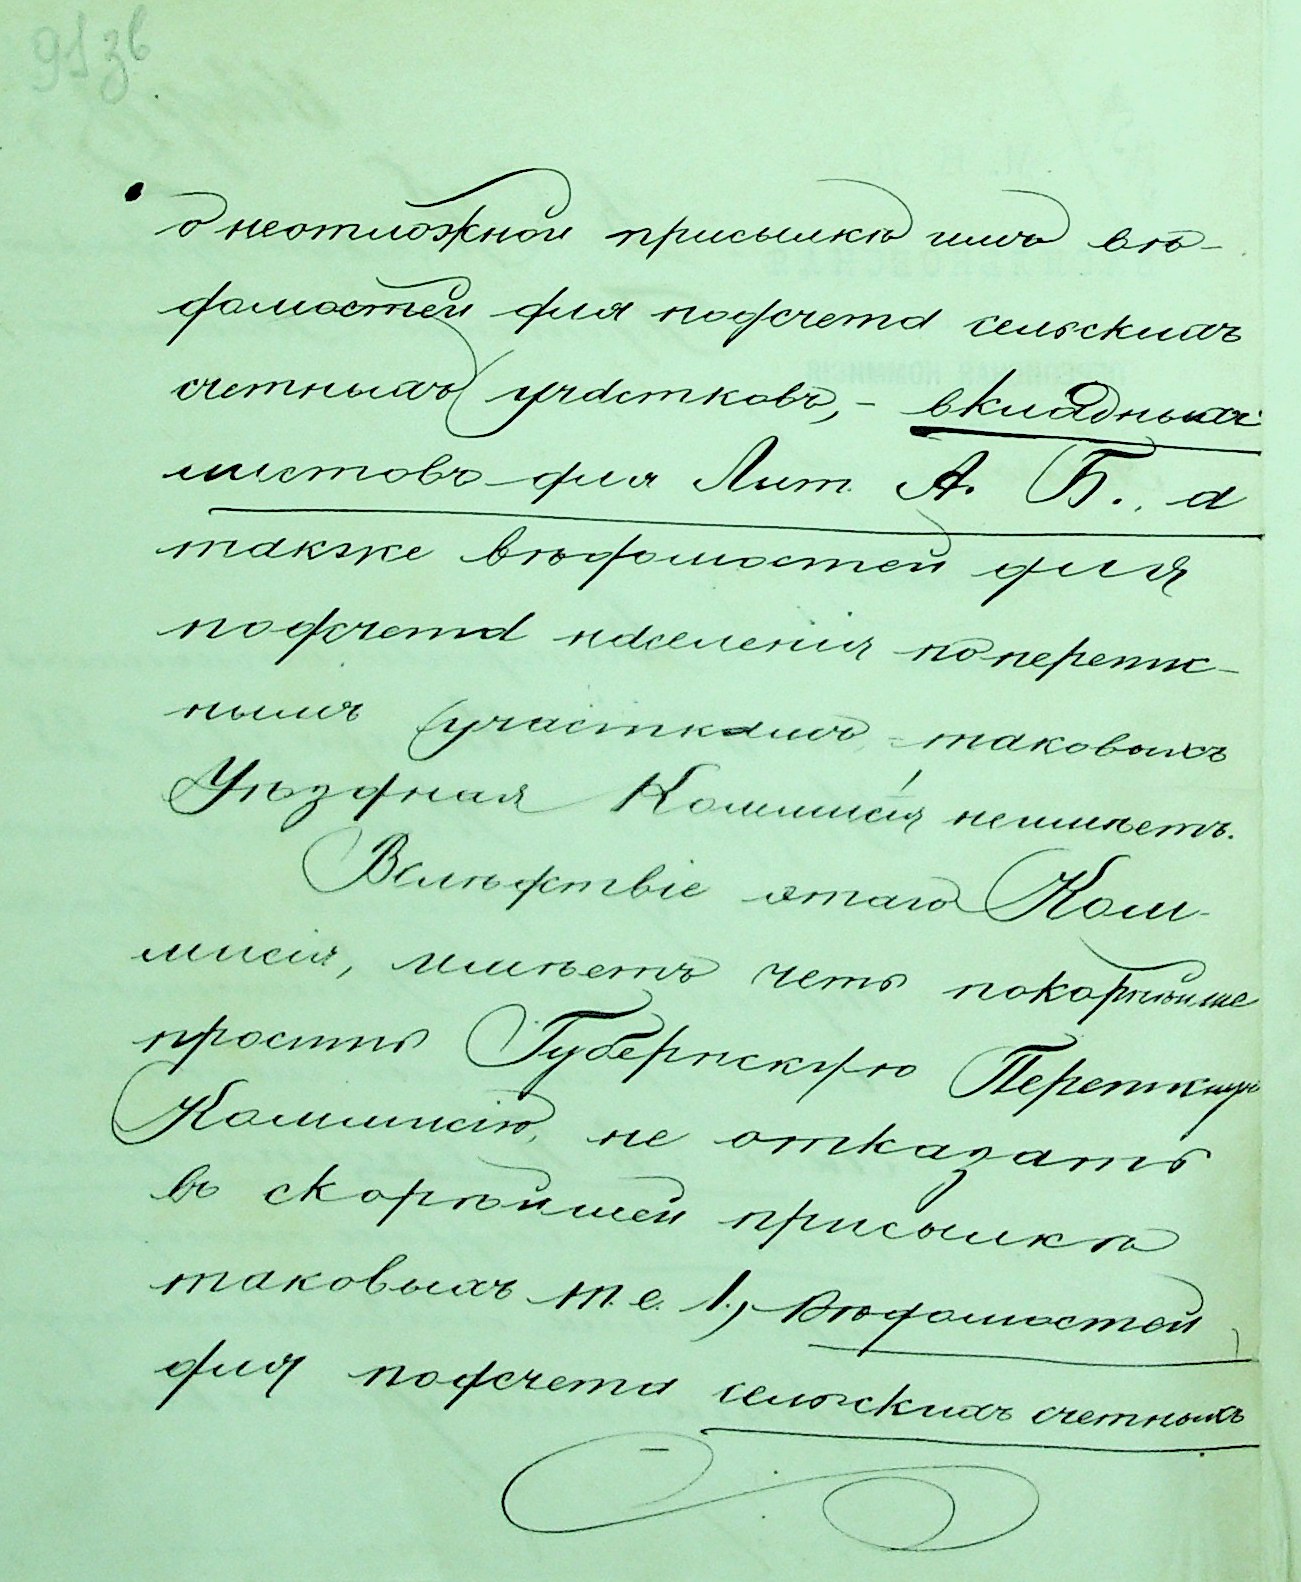 91 зв
о неотложной присылкѣ имъ вѣ-
домостей для подсчета сельскихъ
счетныхъ участковъ, – вкладныхъ
листовъ для Лит. А. Б., а
также вѣдомостей для
подсчета населенія по перепис-
нымъ участкамъ, – таковыхъ
Уѣздная Коммисія неимѣетъ.
Вслѣдствіе этаго Ком-
мисія, имѣетъ честь покорнѣйше
просить Губернскую Переписную
Коммисію, не отказать
въ скорѣйшей присылкѣ
таковыхъ т. е. 1., Вѣдомостей
для подсчета сельскихъ счетныхъ